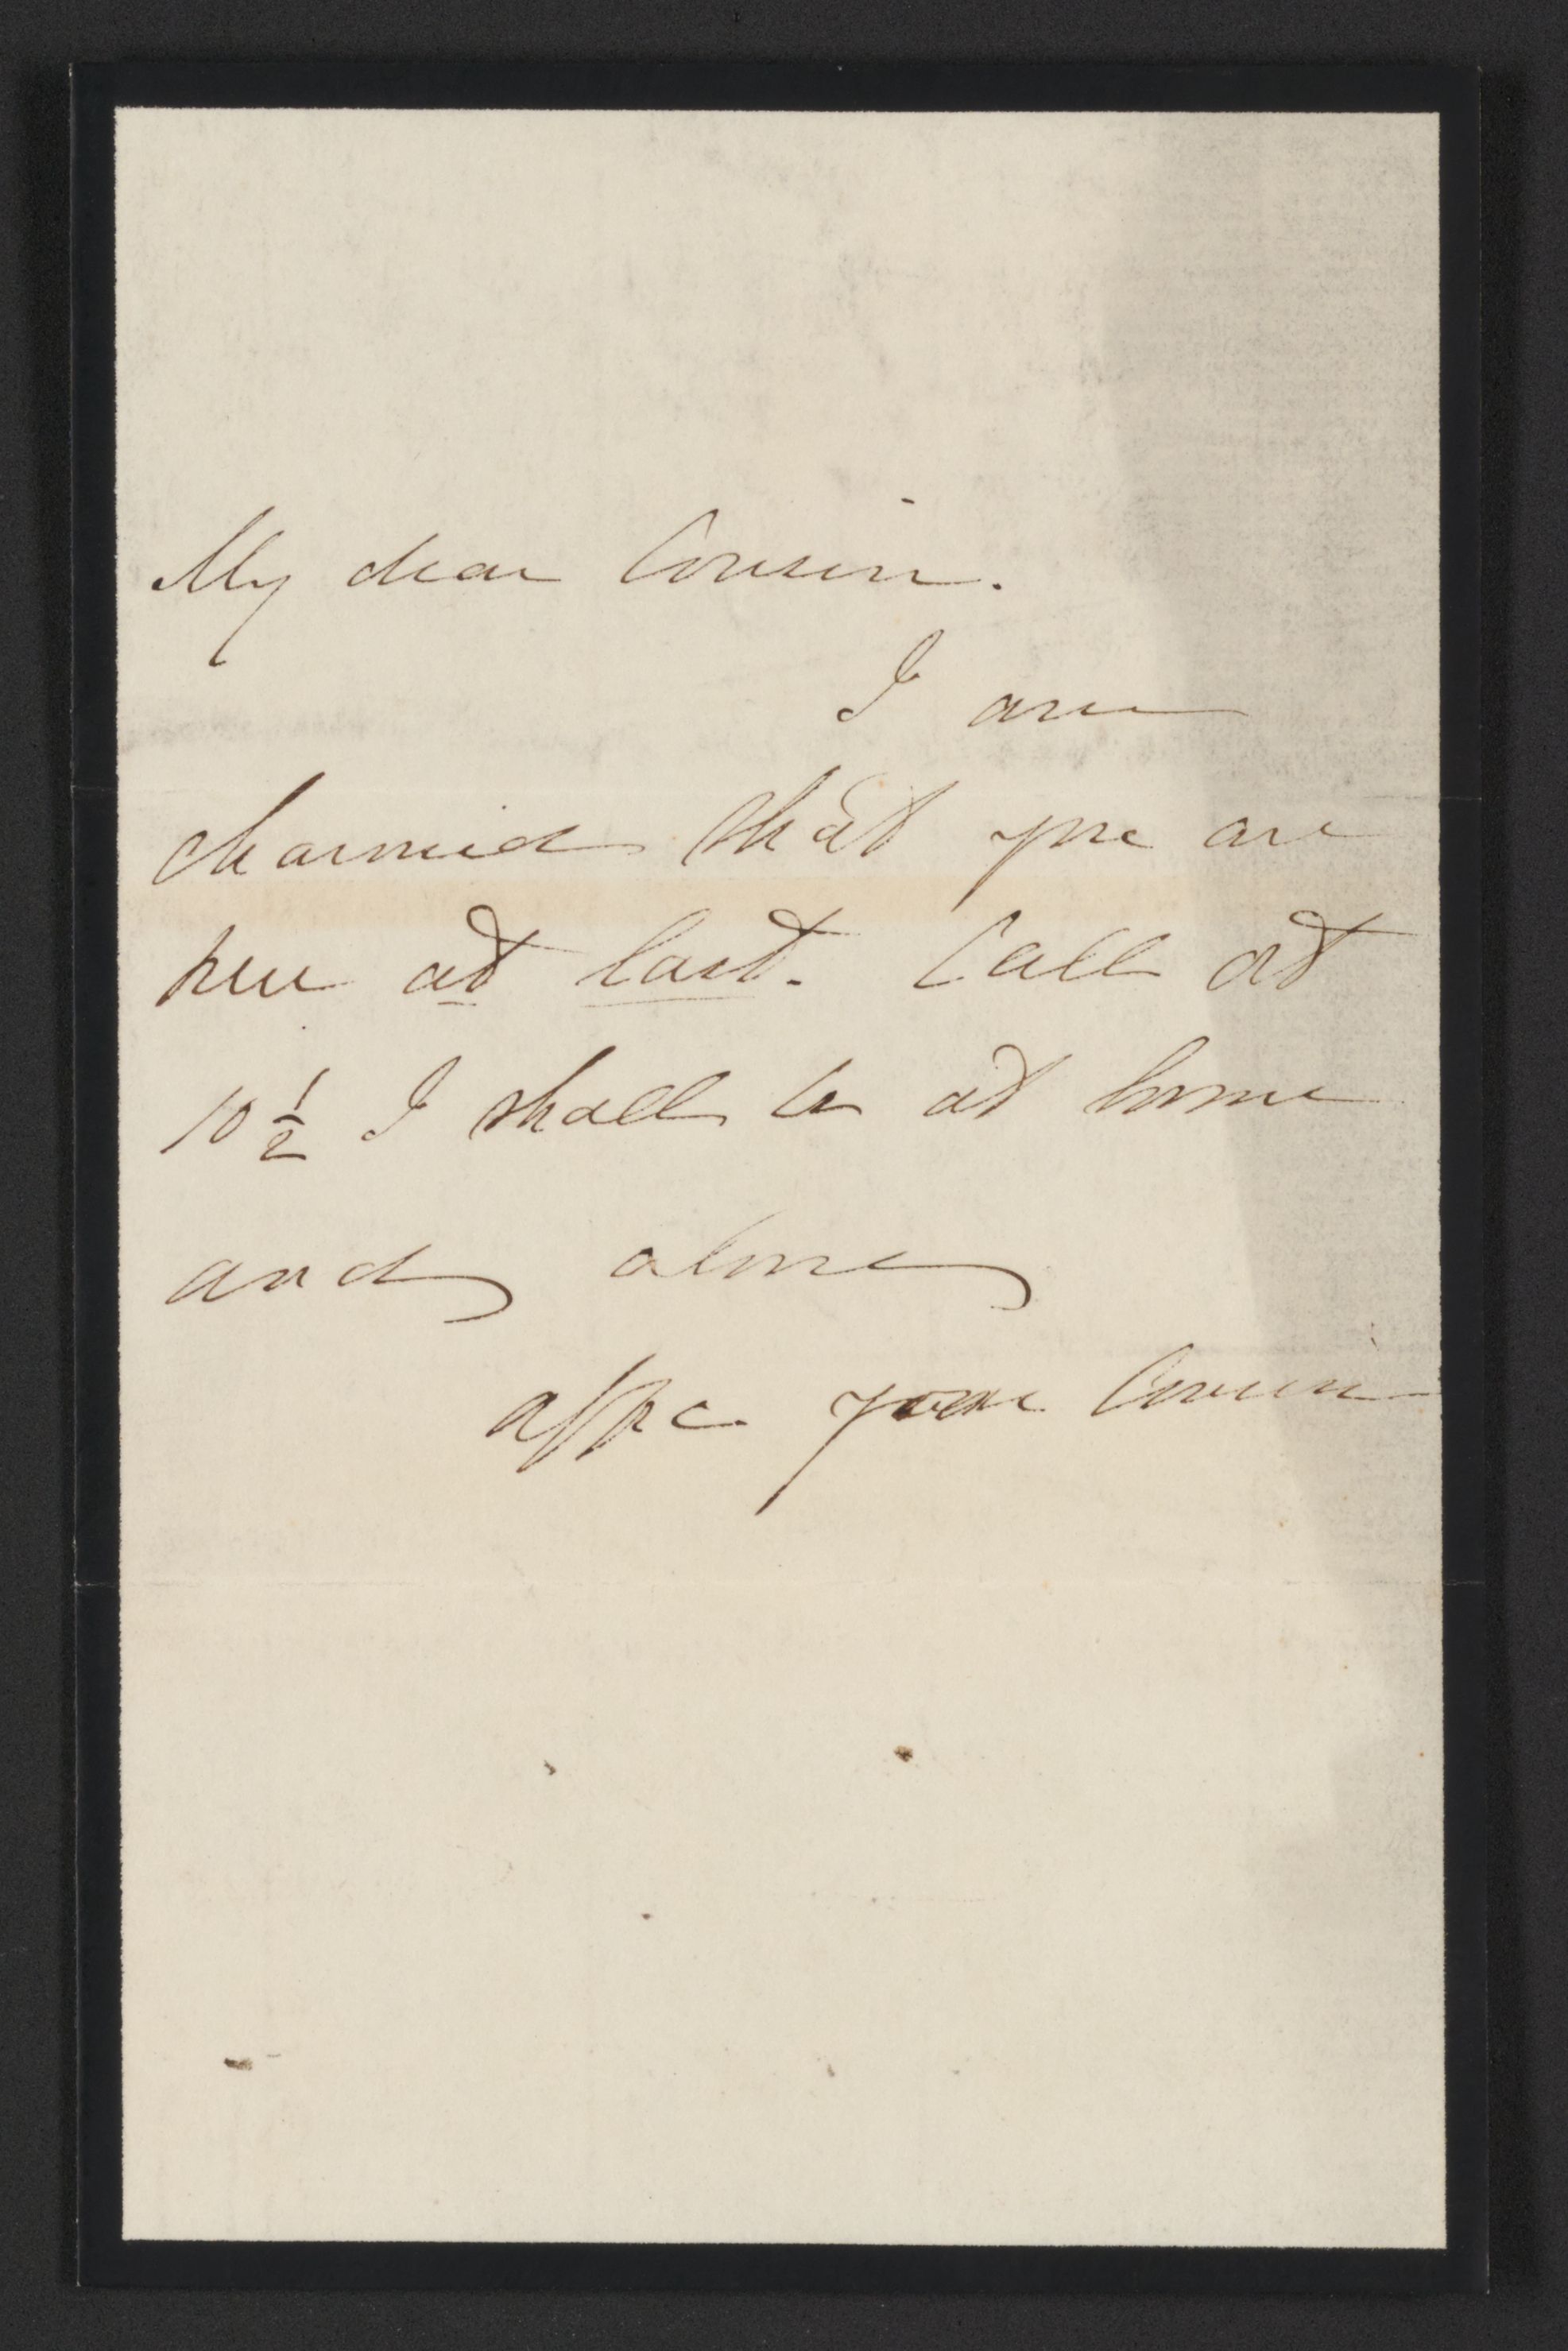 My dear Cousin.
I am
charmed that you are
here at last. Call at
10 1/2 I shall be at home
and alone
affec. your Cousin